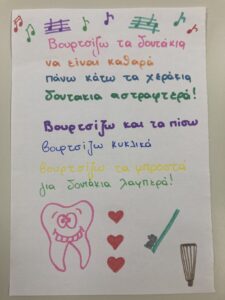 Βουρτσίζω τα δοντάκια
να είναι καθαρά
πάνω κάτω τα χεράκια
δοντάκια αστραφτερά!
Βουρτσίζω και τα πίσω
βουρτσίζω κυκλικά
βουρτσίζω τα μπροστά
για δοντάκια λαμπερά!